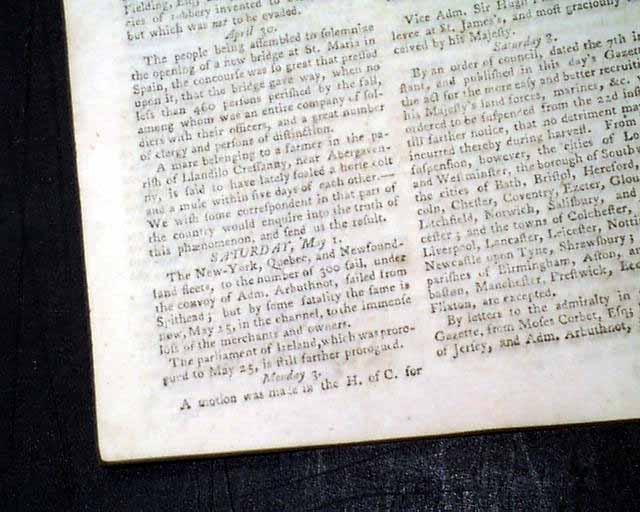 Fielding, Esq;
cies of robbery invented to
but which was not to be evaded.
April 30.
The people being assembled to solemnize
the opening of a new bridge at St. Maria in
Spain, the concourse was so great that pressed
upon it, that the bridge gave way, when no
less than 460 persons perished by the fall,
among whom was an entire company of sol-
diers with their officers, and a great number
of clergy and persons of distinction.
A mare belonging to a farmer in the pa-
rish of Llandilo Cressanny, near Abergaven-
ny, is said to have lately foaled a horse colt
and a mule within five days of each other.—
We wish some correspondent in that part of
the country would enquire into the truth of
this phænomenon, and send us the result.
SATURDAY, May 1.
The New-York, Quebec, and Newfound-
land fleets, to the number of 300 sail, under
the convoy of Adm. Arbuthnot, sailed from
Spithead; but by some fatality the same is
now, May 25, in the channel, to the immense
loss of the merchants and owners.
The parliament of Ireland, which was proro-
gued to May 25, is still farther prorogued.
Monday 3.
A motion was made in the H. of C. for
Vice Adm. Sir Hugh
levee at St. James's, and most graciously
ceived by his Majesty.
Saturday 8.
By an order of council, dated the 7th
stant, and published in this day's Gazette
the act for the more easy and better recruiting
his Majesty's land forces, marines, &c.
ordered to be suspended from the 22d inst
till farther notice, that no detriment may
incurred thereby during harvest. From
suspension, however, the cities of
and Westminster, the borough of Southw
the cities of Bath, Bristol, Hereford
coln, Chester, Coventry, Exeter, Glou
Litchfield, Norwich, Salisbury, and
cester; and the towns of Colchester,
Liverpool, Lancaster, Leicester, Nott
Newcastle upon Tyne, Shrewsbury;
parishes of Birmingham, Aston, and
baston, Manchester, Prestwick,
Flixton, are excepted.
By letters to the admiralty in
Gazette, from Moses Corbet, Esq;
of Jersey, and Adm. Arbuthnot,